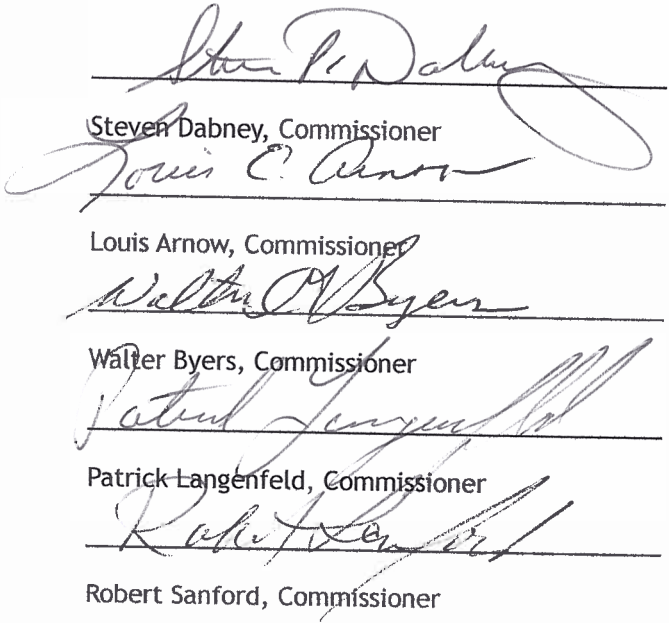 Steven P. Dabney
Steven Dabney, Commissioner
Louis C. Arnow
Louis Arnow, Commissioner
Walter Byers
Walter Byers, Commissioner
Patrick Langenfeld
Patrick Langenfeld, Commissioner
Robert Sanford
Robert Sanford, Commissioner